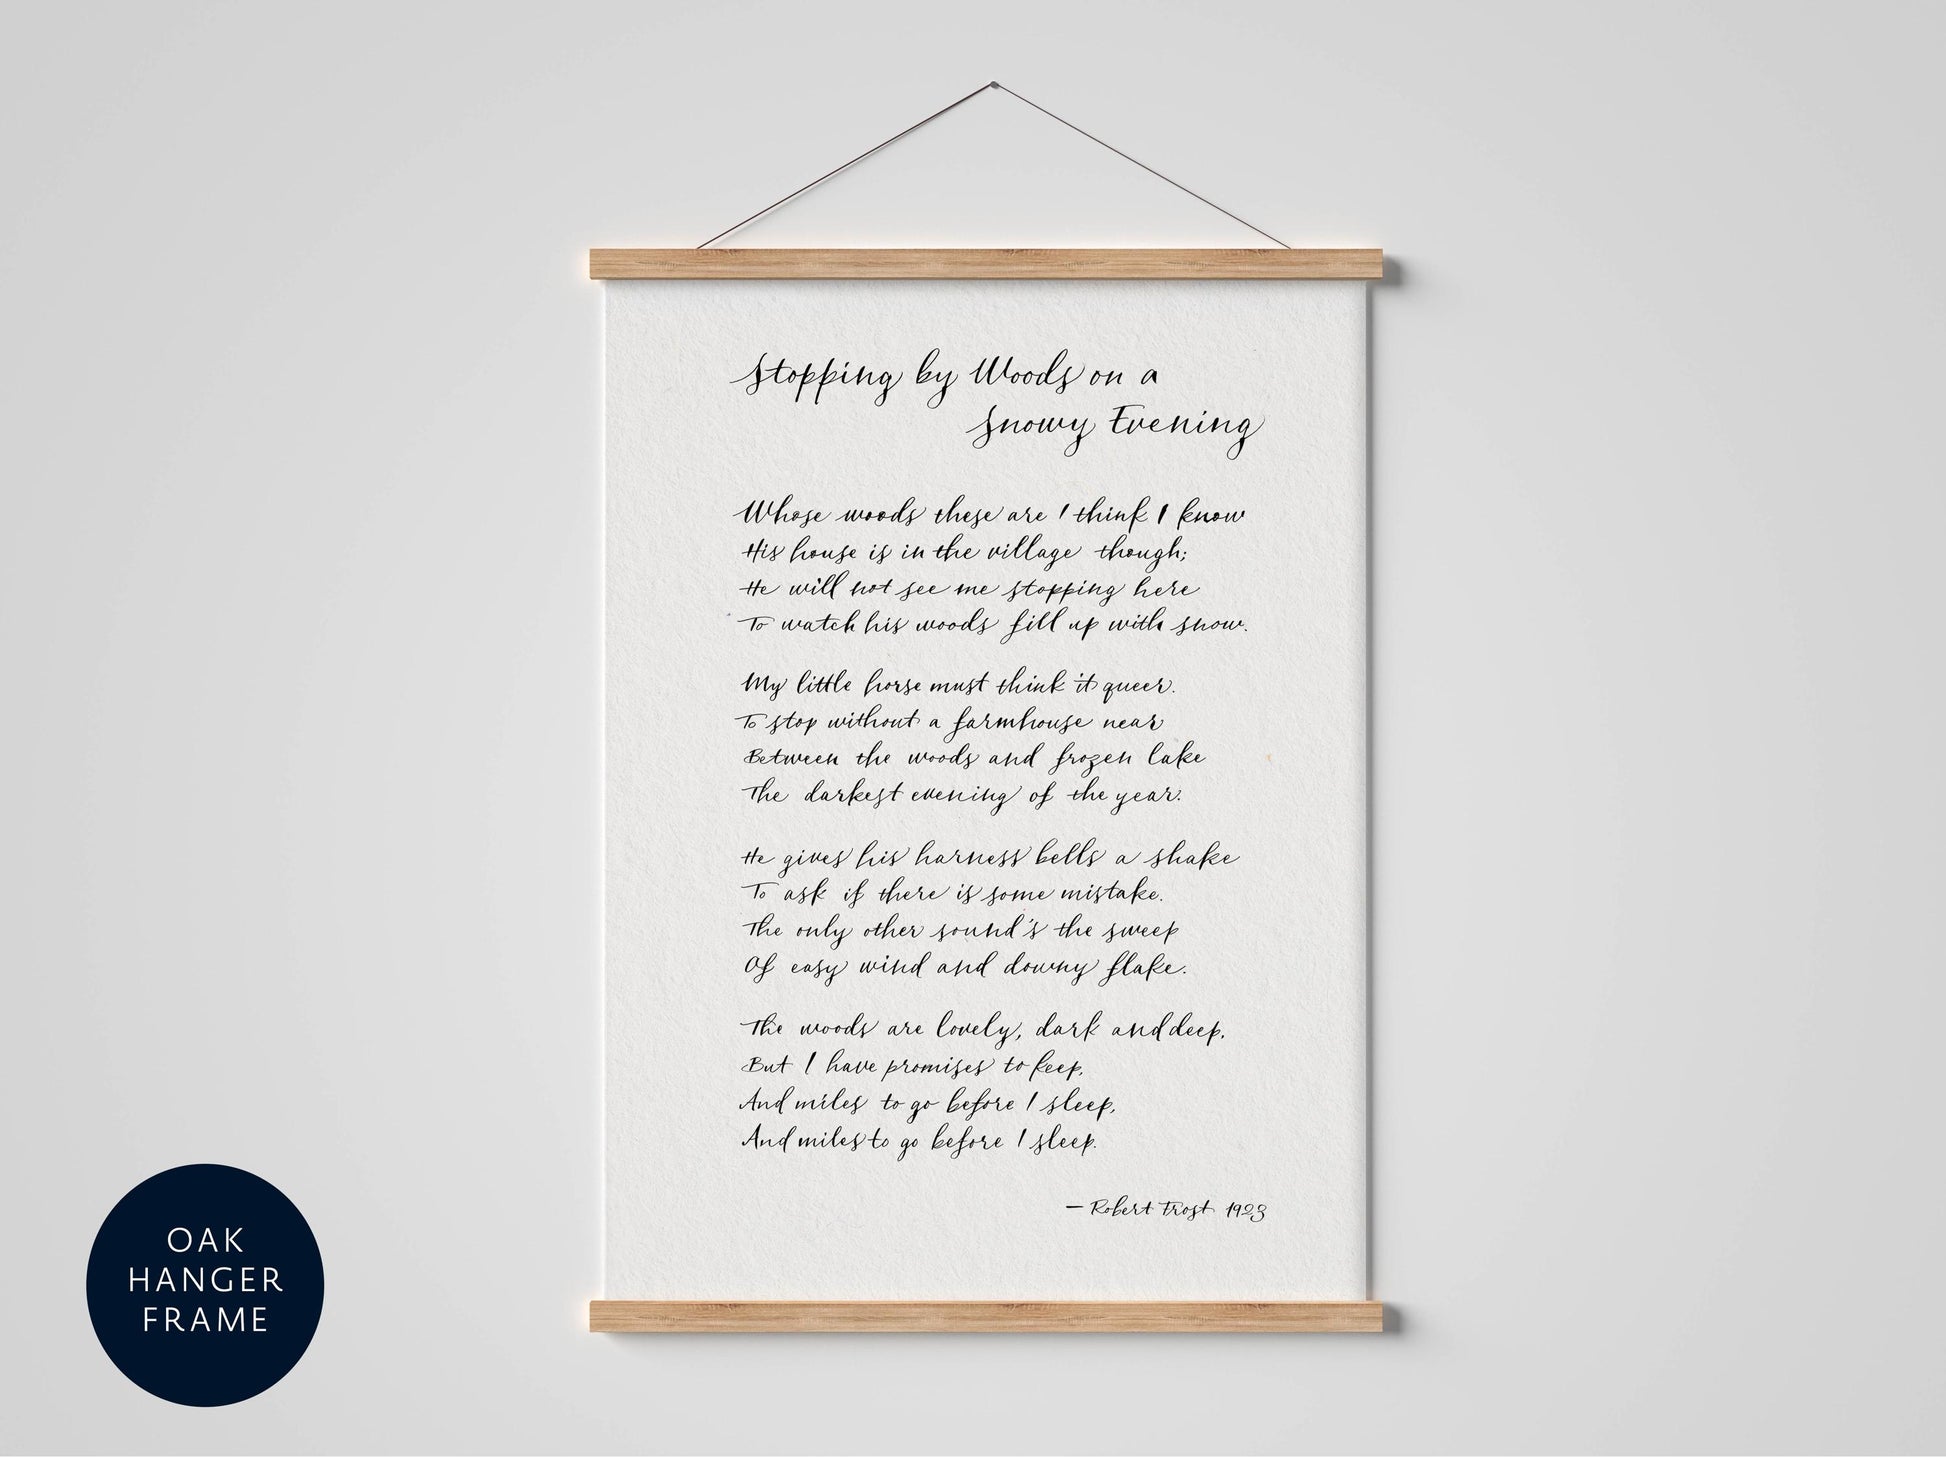 Stopping by Woods on a
Snowy Evening
Whose woods these are I think I know
His house is in the village though;
He will not see me stopping here
To watch his woods fill up with snow.
My little horse must think it queer.
To stop without a farmhouse near
Between the woods and frozen lake
The darkest evening of the year.
He gives his harness bells a shake
To ask if there is some mistake.
The only other sound's the sweep
Of easy wind and downy flake.
The woods are lovely, dark and deep,
But I have promises to keep,
And miles to go before I sleep,
And miles to go before I sleep.
— Robert Frost 1923
OAK
HANGER
FRAME